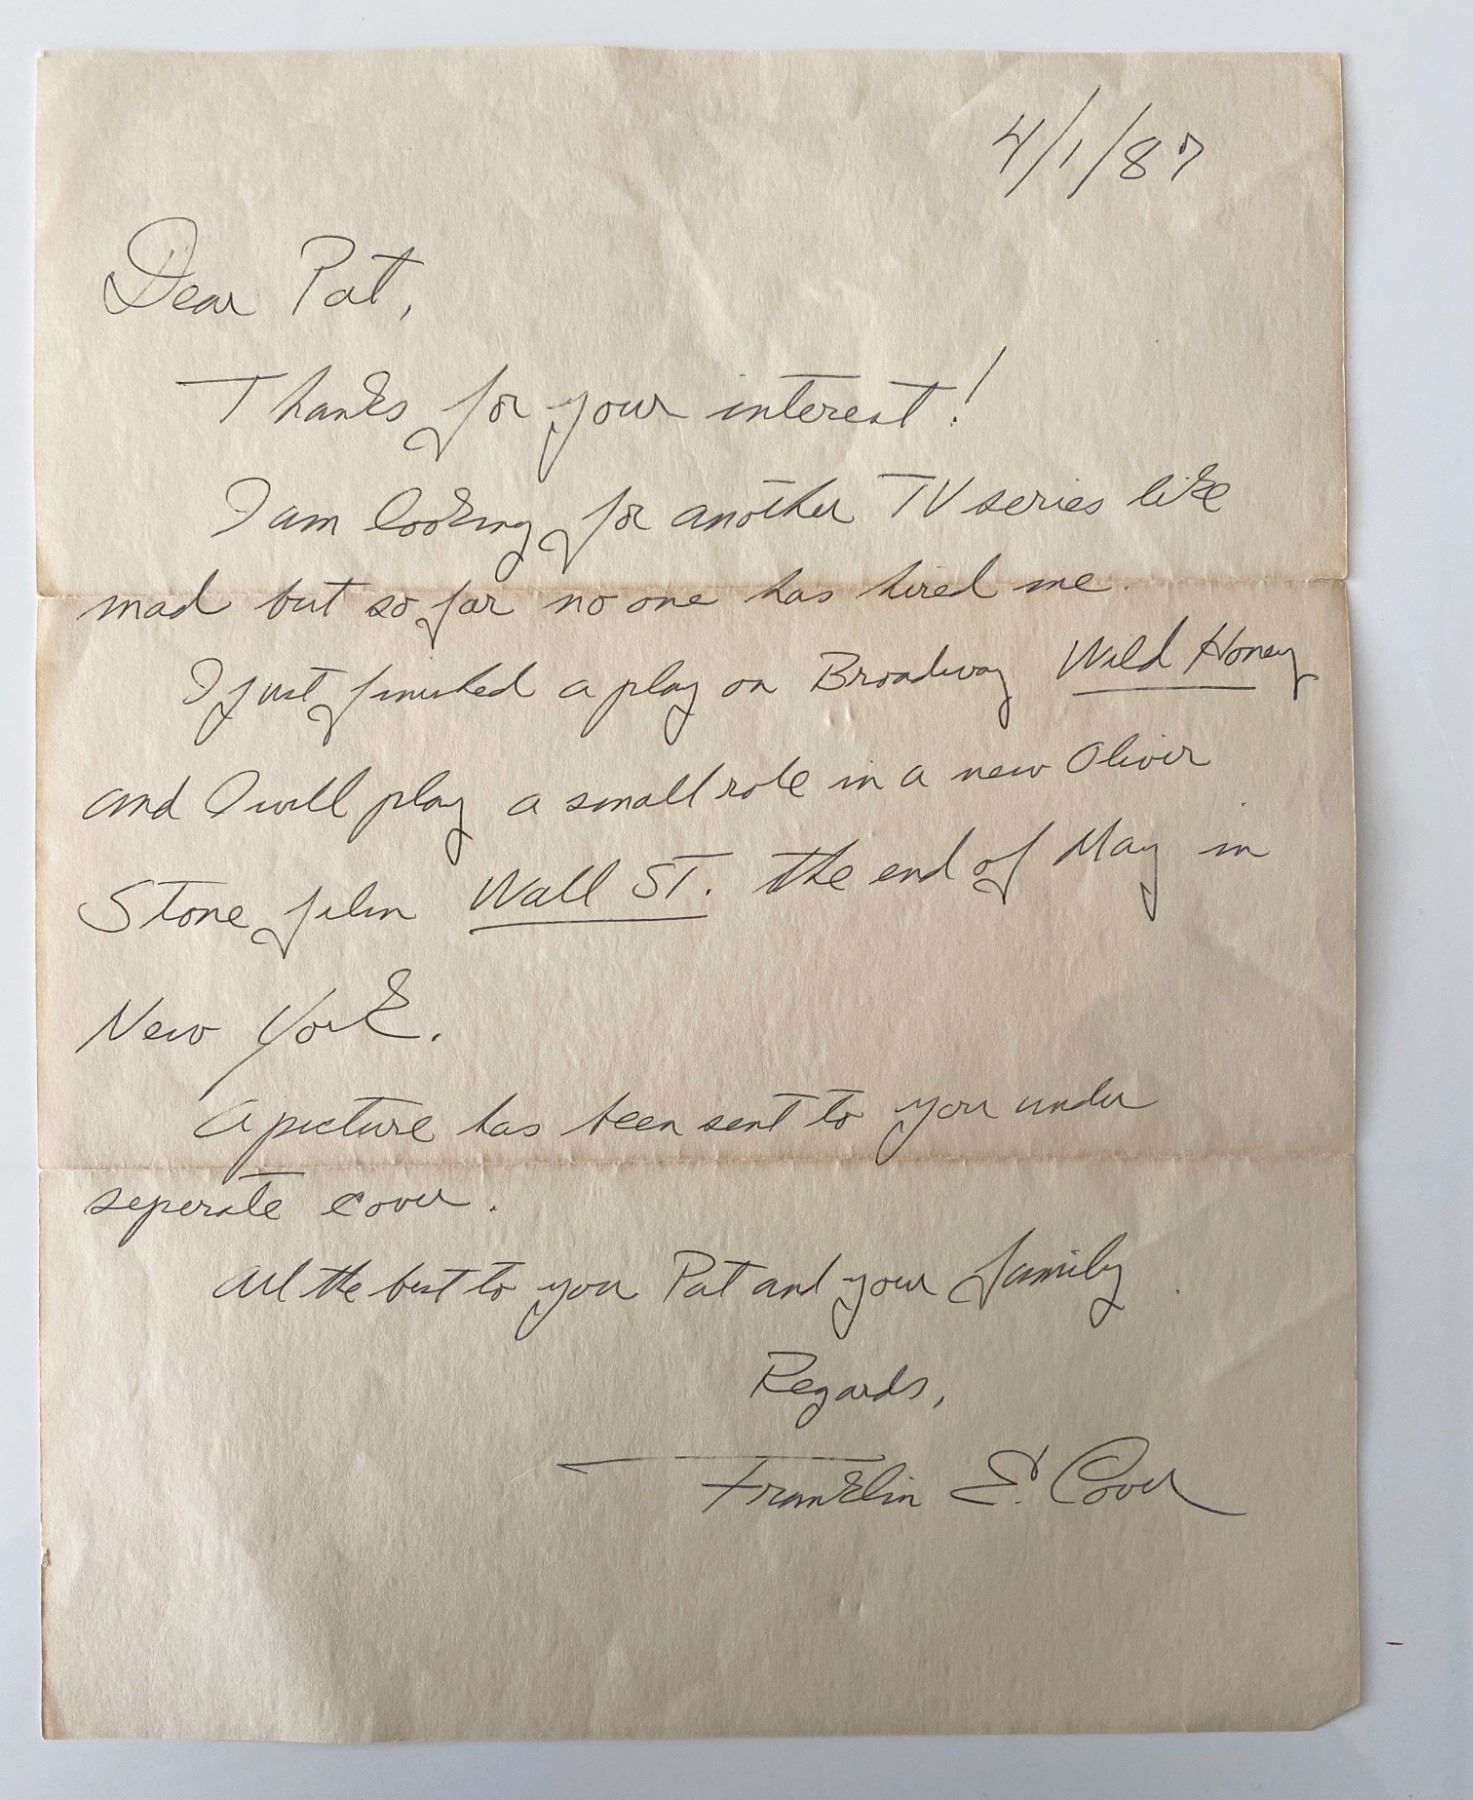 4/1/87
Dear Pat,
Thanks for your interest!
I am looking for another TV series like
mad but so far no one has hired me.
I just finished a play on Broadway Wild Honey
and I will play a small role in a new Oliver
Stone film Wall St. the end of May in
New York.
A picture has been sent to you under
seperate cover.
All the best to you Pat and your family.
Regards,
Franklin E. Cover